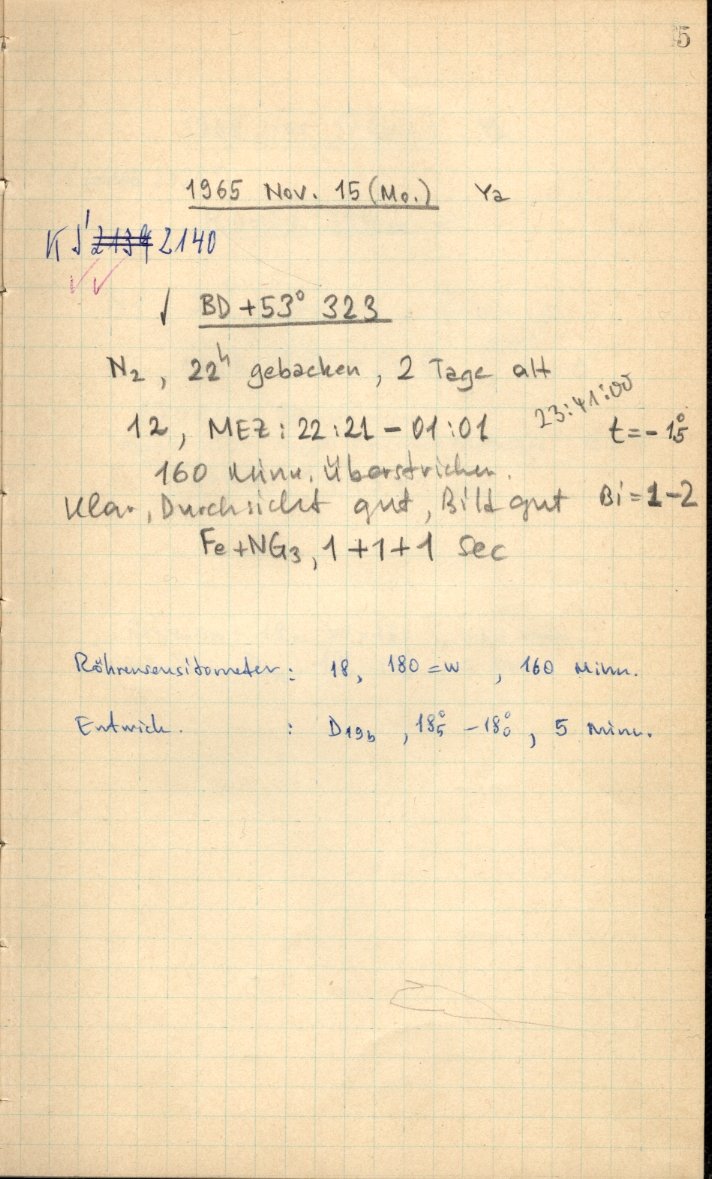 5
1965 Nov. 15 (Mo.) Ya
KJ 2139 2140
√ BD +53° 323
N2, 22h gebacken, 2 Tage alt
12, MEZ: 22:21 – 01:01 23:41:00 t = -1°5
160 Minu. Überstrichen.
Klar, Durchsicht gut, Bild gut Bi = 1-2
Fe + NG3, 1 + 1 + 1 Sec
Röhrensensitometer: 18, 180 = w, 160 Minu.
Entwick. : D19b, 18°5 – 18°0, 5 Minu.